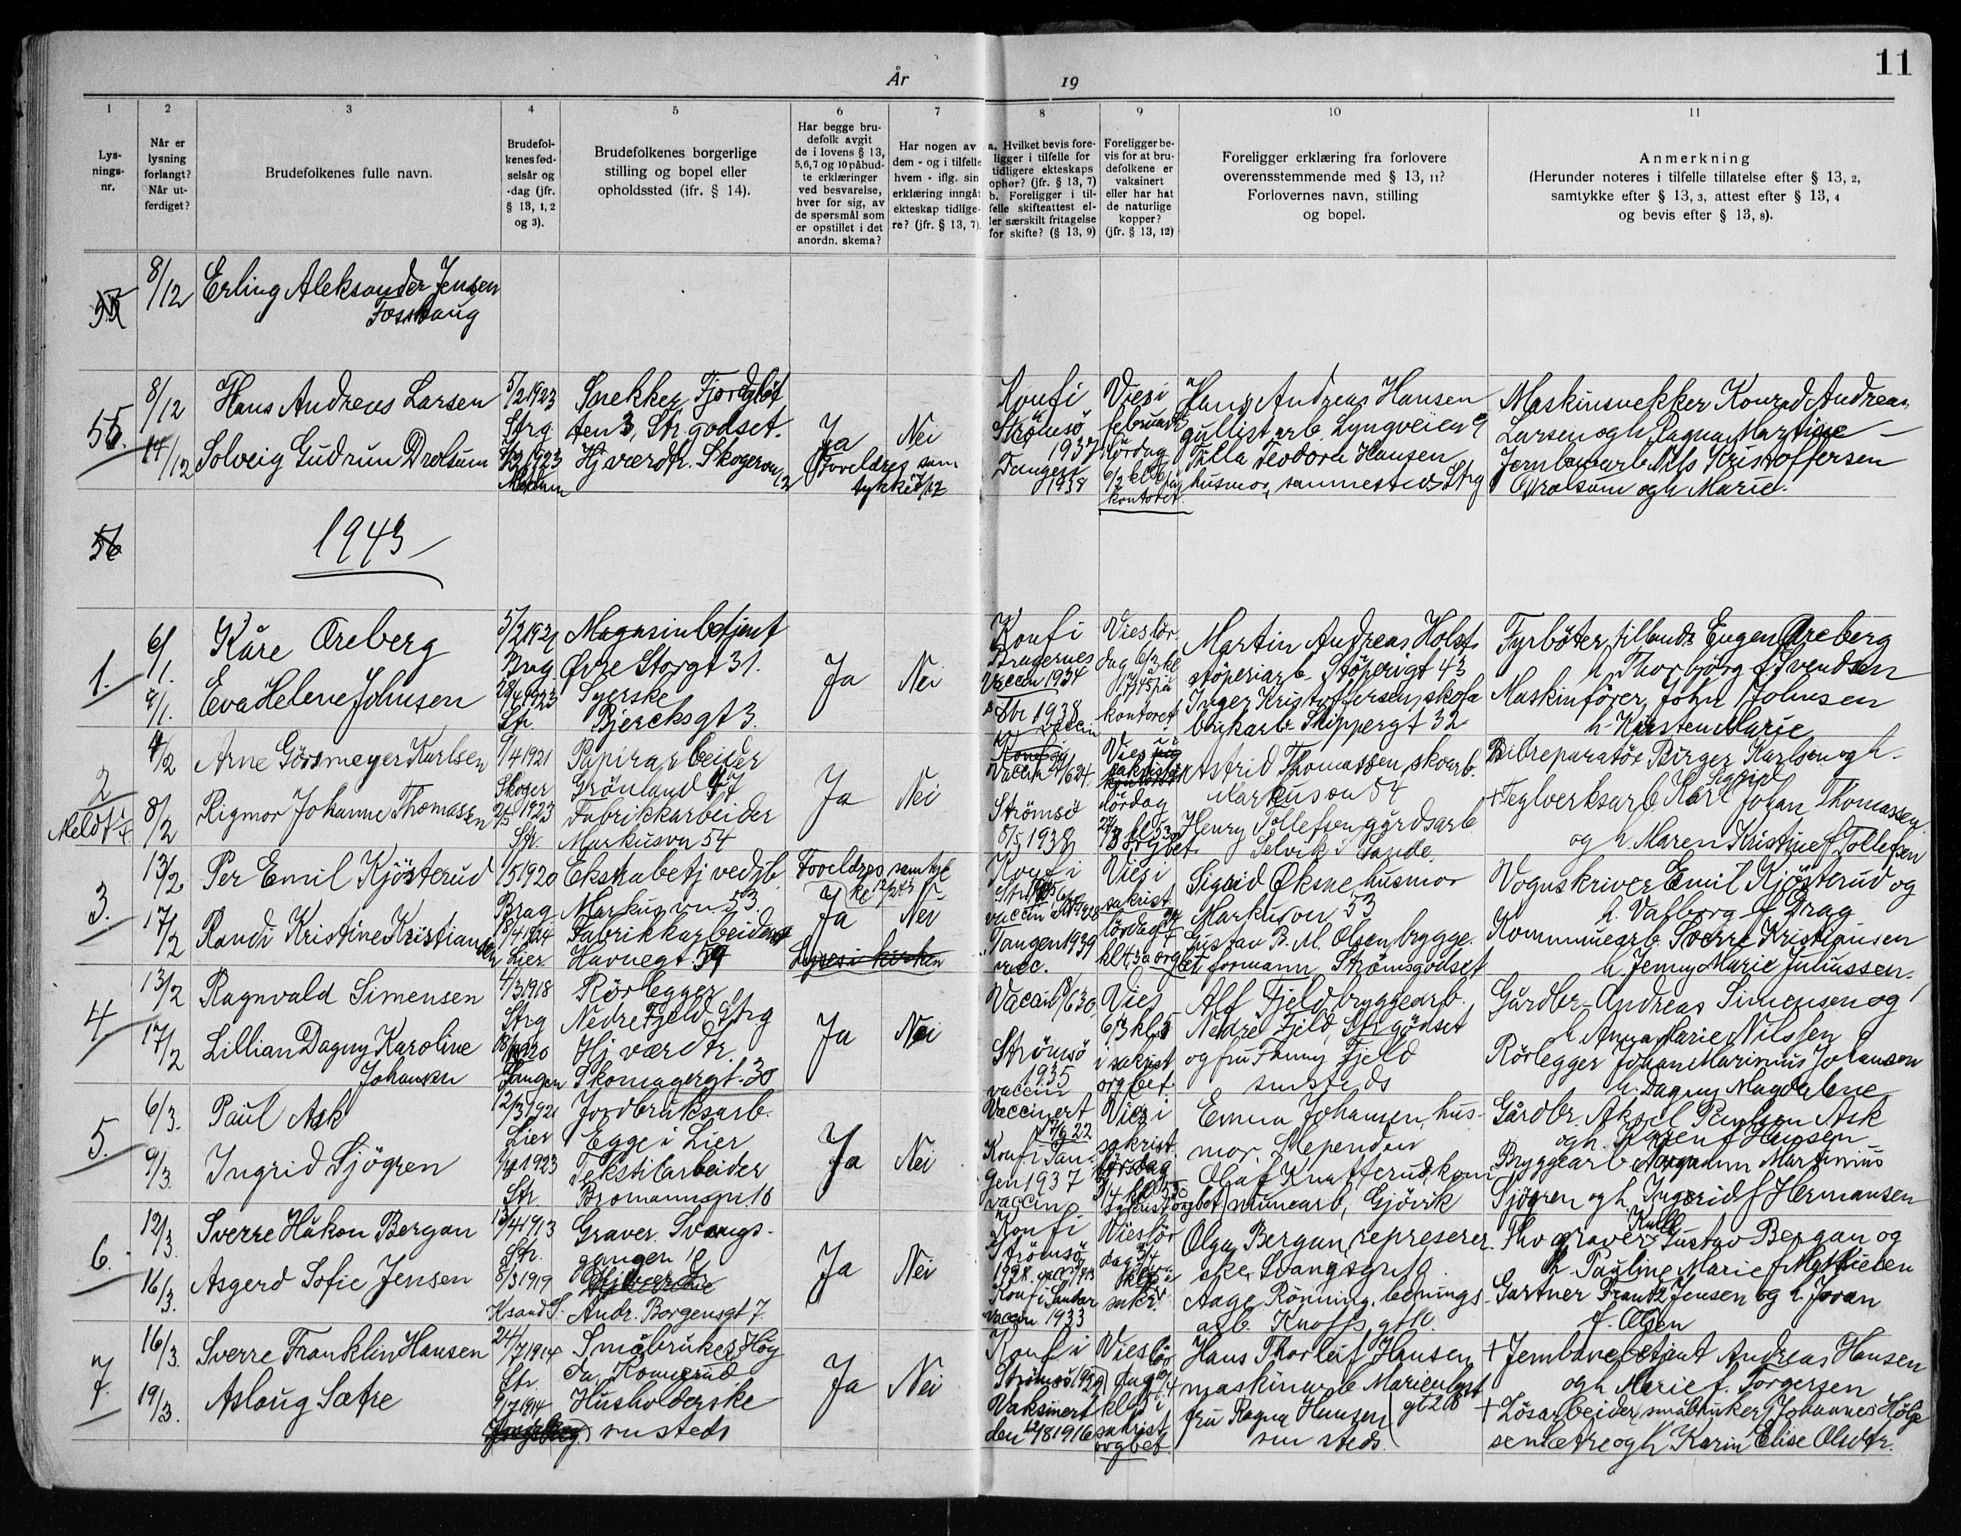 11
År
19
1
2
3
4
5
6
7
8
9
10
11
Lys-
nings-
nr.
Når er
lysning
forlangt?
Når ut-
ferdiget?
Brudefolkenes fulle navn.
Brudefol-
kenes fød-
selsår og
-dag (jfr.
§ 13, 1, 2
og 3).
Brudefolkenes borgerlige
stilling og bopel eller
opholdssted (jfr. § 14).
Har begge bru-
defolk avgit
de i lovens § 13,
5, 6, 7 og 10 påbud-
te erklæringer
ved besvarelse,
hver for sig, av
de spørsmål som
er opstillet i det
anordn. skema?
Har nogen av
dem - og i tilfelle
hvem - iflg. sin
erklæring inngåt
ekteskap tidlige-
re? (jfr. § 13, 7)
a. Hvilket bevis fore-
ligger i tilfelle for
tidligere ekteskaps
ophør? (jfr. § 13, 7)
b. Foreligger i til-
felle skifteattest el-
ler særskilt fritagelse
for skifte? (§ 13, 9)
Foreligger be-
vis for at bru-
defolkene er
vaksinert
eller har hat
de naturlige
kopper?
(jfr. § 13, 12)
Foreligger erklæring fra forlovere
overensstemmende med § 13, 11?
Forlovernes navn, stilling
og bopel.
Anmerkning
(Herunder noteres i tilfelle tillatelse efter § 13, 2,
samtykke efter § 13, 3, attest efter § 13, 4
og bevis efter § 13, 8).
8/12 Erling Aleksander Jensen
Fosshaug
55.
8/12 Hans Andreas Larsen
14/12 Solveig Gudrun Drolsum
5/2 1923
Strg
Snekker
ten 3, Str.godset.
Hj.værdtr. Skogerv
12
Ja
Foreldres sam
tykke
Nei
Konf i
Strömsö
1937
Tangen
1938
Vies i
februar
lördag
6/2 kl
kontoret
Hans Andreas Hansen
gullistarb. Lyngveien 9
Tilla Teodora Hansen
husmor, sammesteds Strg
Maskinsnekker Konrad Andreas
Larsen og h. Ragna Martine
Jernbanearb Nils Kristoffersen
Drolsum og h. Marie.
56
1943
1.
6/1. Kåre Öreberg
9/1. Eva Helene Johnsen
5/2 1921
Brag
28/6 1923
Str.
Magasinbetjent
Øvre Storgt 31.
Syerske
Bjercksgt 3.
Ja
Nei
Konf i
Bragernes
Vaccin 1934
Str 1938
vaccin
Vies lör-
dag 6/3 kl
kontoret
Martin Andreas Holst
stöperiarb. Stöperigt 43
Inger Kristoffersen, skofa
brikarb. Skippergt 32
Fyrböter tillands Eugen Öreberg
h. Thorbjörg f. Svendsen
Maskinförer John Johnsen
h. Kirsten Marie
2
Meldt
4/2 Arne Görsmeyer Karlsen
8/2 Rigmor Johanne Thomassen
9/4 1921
Skoger
2/5 1923
Str.
Papirarbeider
Grönland 47
Fabrikkarbeider
Markusvn 54
Ja
Nei
Strömsö
1938
Vies
lördag
Astrid Thomassen, skoarb.
Markusvn 54
Henry Tollefsen gårdsarb
Selvik i Sande.
Bilreparatör Birger Karlsen og h.
Sigrid
+ Teglverksarb Karl Johan Thomassen
og h. Maren Kristine f Tollefsen
3.
13/2 Per Emil Kjösterud
17/2 Randi Kristine Kristiansen
1/5 1920
Brag
Lier
Ekstrabetj ved
Markusvn. 53.
Fabrikkarbeider
Havnegt. 59
Foreldres samtyk
ke
Ja
Nei
Lyses i kirken
Konf i
Tangen 1939
vacc.
Vies i
sakrist
lördag
Sigrid Øksne, husmor
Markusvn, 53
Gustav B. M. Olsen, brygge-
formann, Strömsgodset
Vognskriver Emil Kjösterud og
h. Valborg f. Drag
Kommunearb. Sverre Kristiansen
h. Jenny Marie Juliussen.
4
13/2 Ragnvald Simensen
17/2 Lillian Dagny Karoline
Johansen
4/3 1918
Strg
1920
Tangen
Rörlegger
Nedre Fjeld Strg
Hj. værdtr.
Skomagergt. 30
Ja
Nei
Strömsö
1935
vaccin
Vies
6/3 kl 5
i sakrist
orgbet.
Alf Fjeld bryggearb.
Nedre Fjeld, Str.godset
og fru Fanny Fjeld
smsteds
Gårdbr. Andreas Simensen og
h. Anna Marie Nilssen
Rörlegger Johan Marinius Johansen
h. Dagny Magdalene
5.
6/3. Paul Ask
9/3. Ingrid Sjögren
12/3 1921
Lier
1/4 1923
Str
Jordbruksarb.
Egge i Lier
Tekstilarbeider
Bromannspr. 10
Ja
Nei
Vaccinert
22
Konf i Tan-
gen 1937
vaccin
Vies i
sakrist.
Emma Johansen, hus-
mor,
Olaf Knatterud, kom
munearb, Gjövik
Gårdbr. Aksel Paulsen Ask
og h. Karen f Hansen
Bryggearb. Martinius
Sjögren og h. Ingerid f Hermansen
6.
12/3. Sverre Håkon Bergan
16/3. Asgerd Sofie Jensen
13/4 1913
Str.
8/3 1919
Ksand S.
Graver. Svangs-
gangen 10
Andr. Borgensgt 7.
Ja
Nei
Konf i
Strömsö
Konf i Sandar
vaccin 1933
Vies lör
dag 3/4
sakr.
Olga Bergan, represerer-
ske, Svangsgt
Aage Rönning, lednings
arb. Knoffs gt
Thv graver Gustav Bergan og
h. Pauline Marie f Mathiesen
Gartner Frantz Jensen og h. Joran
f. Olsen
7.
16/3. Sverre Franklin Hansen
19/3. Aslaug Sætre
24/7 1914
Str
9/7 1914
Småbruker Høg
da, Konnerud
Husholderske
smsteds
Ja
Nei
Konf i
Strömsö 1929
Vaksinert
den 1/8 1916
Vies lör
dag
kl 5 i
sakrist
orgbet
Hans Thorleif Hansen
maskinarb Marienlyst
fru Ragna Hansen gt 28
smsteds.
+ Jernbanebetjent Andreas Hansen
og h. Marie f. Torgersen
+ Lösarbeider, småbruker Johannes Helge
sen Sætre og h. Karin Elise Olsdtr.